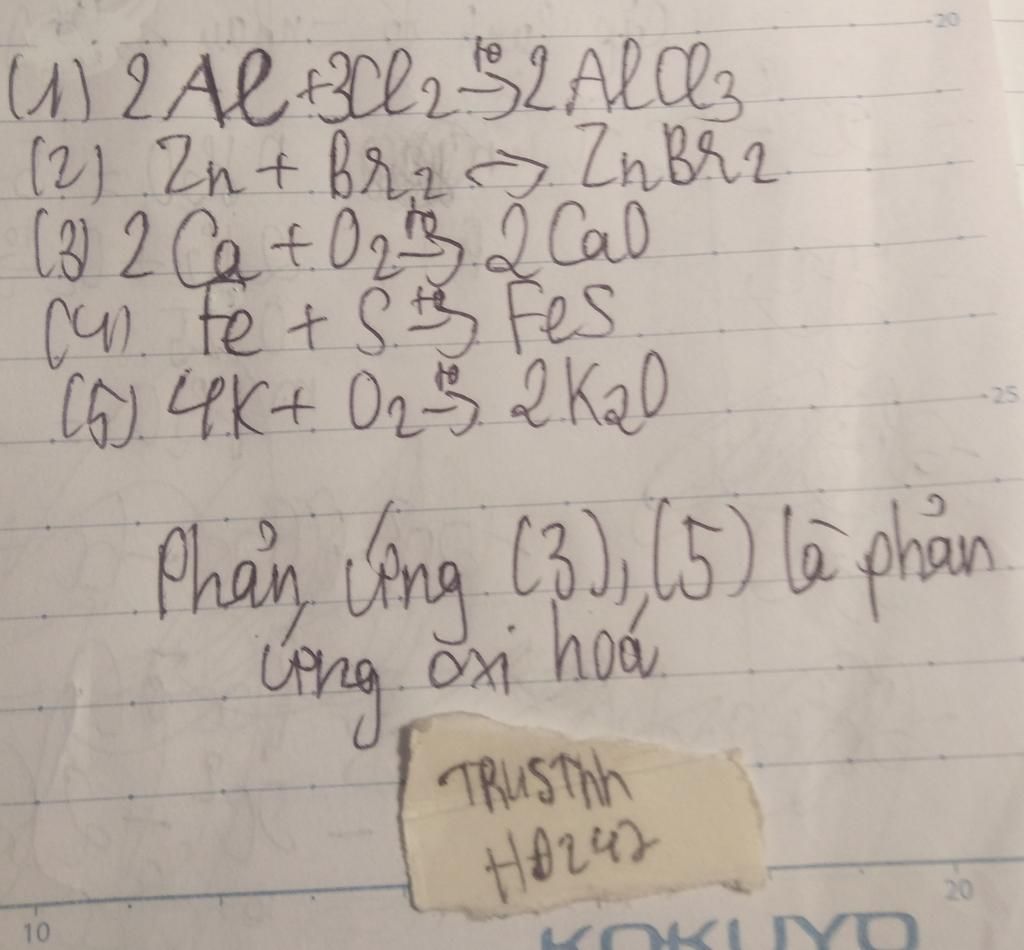 20
(1) 2Al + 3Cl₂ →(t°) 2AlCl₃
(2) Zn + Br₂ → ZnBr₂
(3) 2Ca + O₂ →(t°) 2CaO
(4) Fe + S →(t°) FeS
(5) 4K + O₂ →(t°) 2K₂O
25
Phản ứng (3), (5) là phản
ứng oxi hoá
TRUSTnh
HĐ247
10
20
KOKUYO